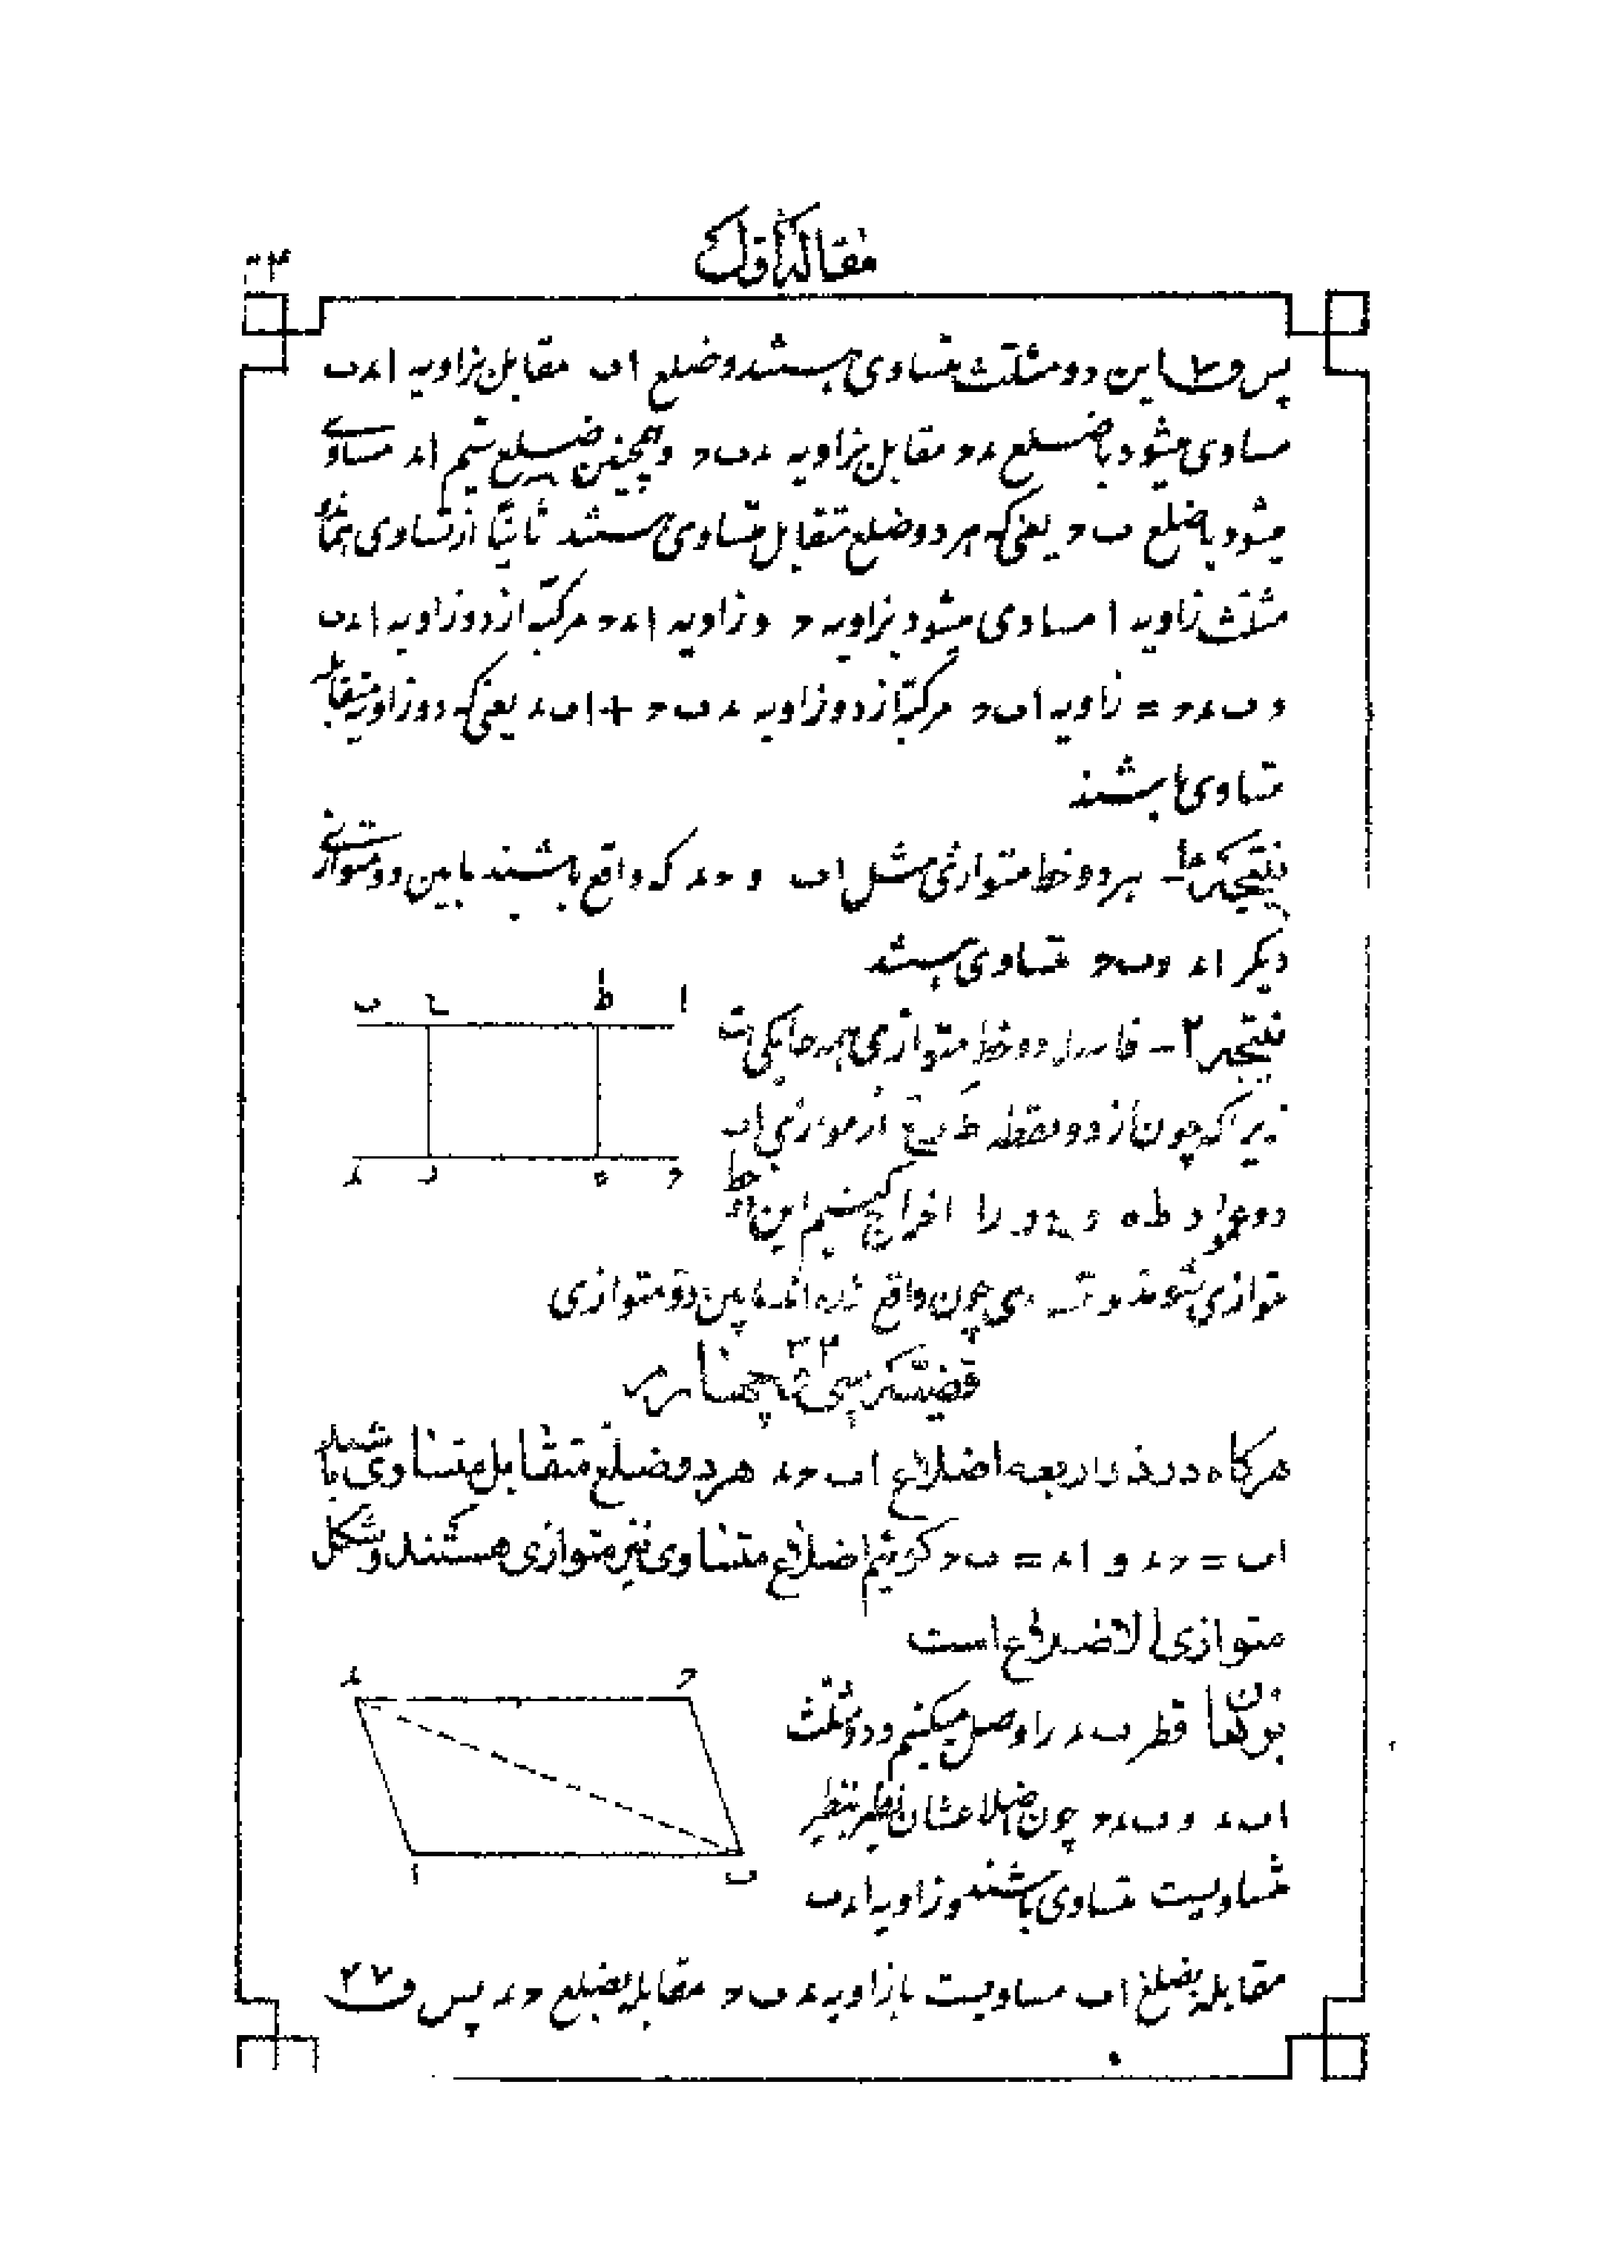 مقاله اول
پس ق این دو مثلث متساوی هستند و ضلع اب مقابل بزاویه ادب
مساوی میشود با ضلع دح مقابل بزاویه دبح و همچنین ضلع سیم اد مساوی
میشود با ضلع بح یعنی که هر دو ضلع متقابل متساوی هستند ثانیاً از تساوی همین دو
مثلث زاویه ا مساوی میشود بزاویه ح و زاویه ادح مرکبه از دو زاویه ادب
و بدح = زاویه ابح مرکبه از دو زاویه دبح + ابد یعنی که دو زاویه متقابله
متساوی باشند
نتیجه ۱ - هر دو خط متوازی مثل اب و حد که واقع باشند مابین دو متوازی
دیگر اد و بح متساوی هستند
ا ط ع ب
ح ه و د
نتیجه ۲ - فاصله دو خط متوازی همه جا یکی است
زیرا که چون از دو نقطه ط و ع از موازی اب
دو عمود طه و عو را اخراج کنیم این دو خط
متوازی شوند و متساوی چون واقع شده اند مابین دو متوازی
قضیه سی و چهارم
هرگاه در ذو اربعه اضلاع ابحد هر دو ضلع متقابل متساوی باشند
اب = حد و اد = بح گوئیم اضلاع متساوی نیز متوازی هستند و شکل
متوازی الاضلاع است
ح د
ا ب
برهان قطر بد را وصل میکنیم و دو مثلث
ابد و بدح چون اضلاعشان نظیر بنظیر
متساویست متساوی باشند و زاویه ادب
مقابله بضلع اب مساویست با زاویه دبح مقابله بضلع حد پس ق ۲۷